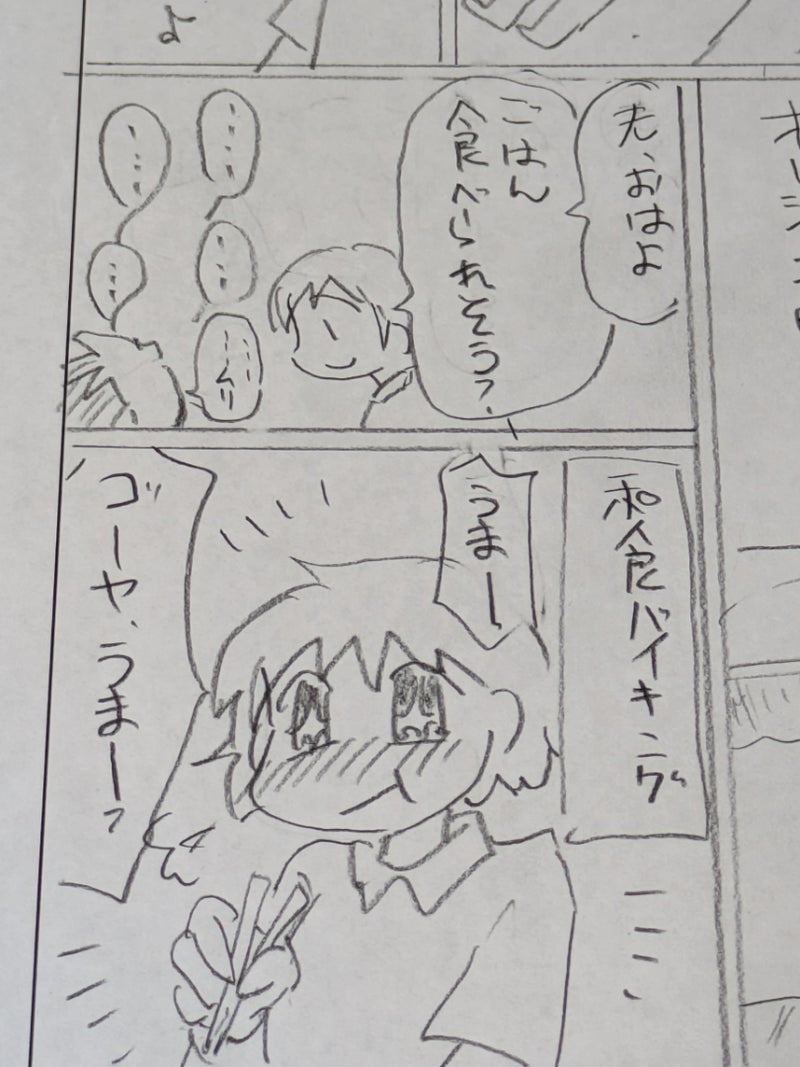 よ
おはよ
ごはん
食べられそう?
……
……
……
……
和食バイキング
うまー
ゴーヤ、うまーっ